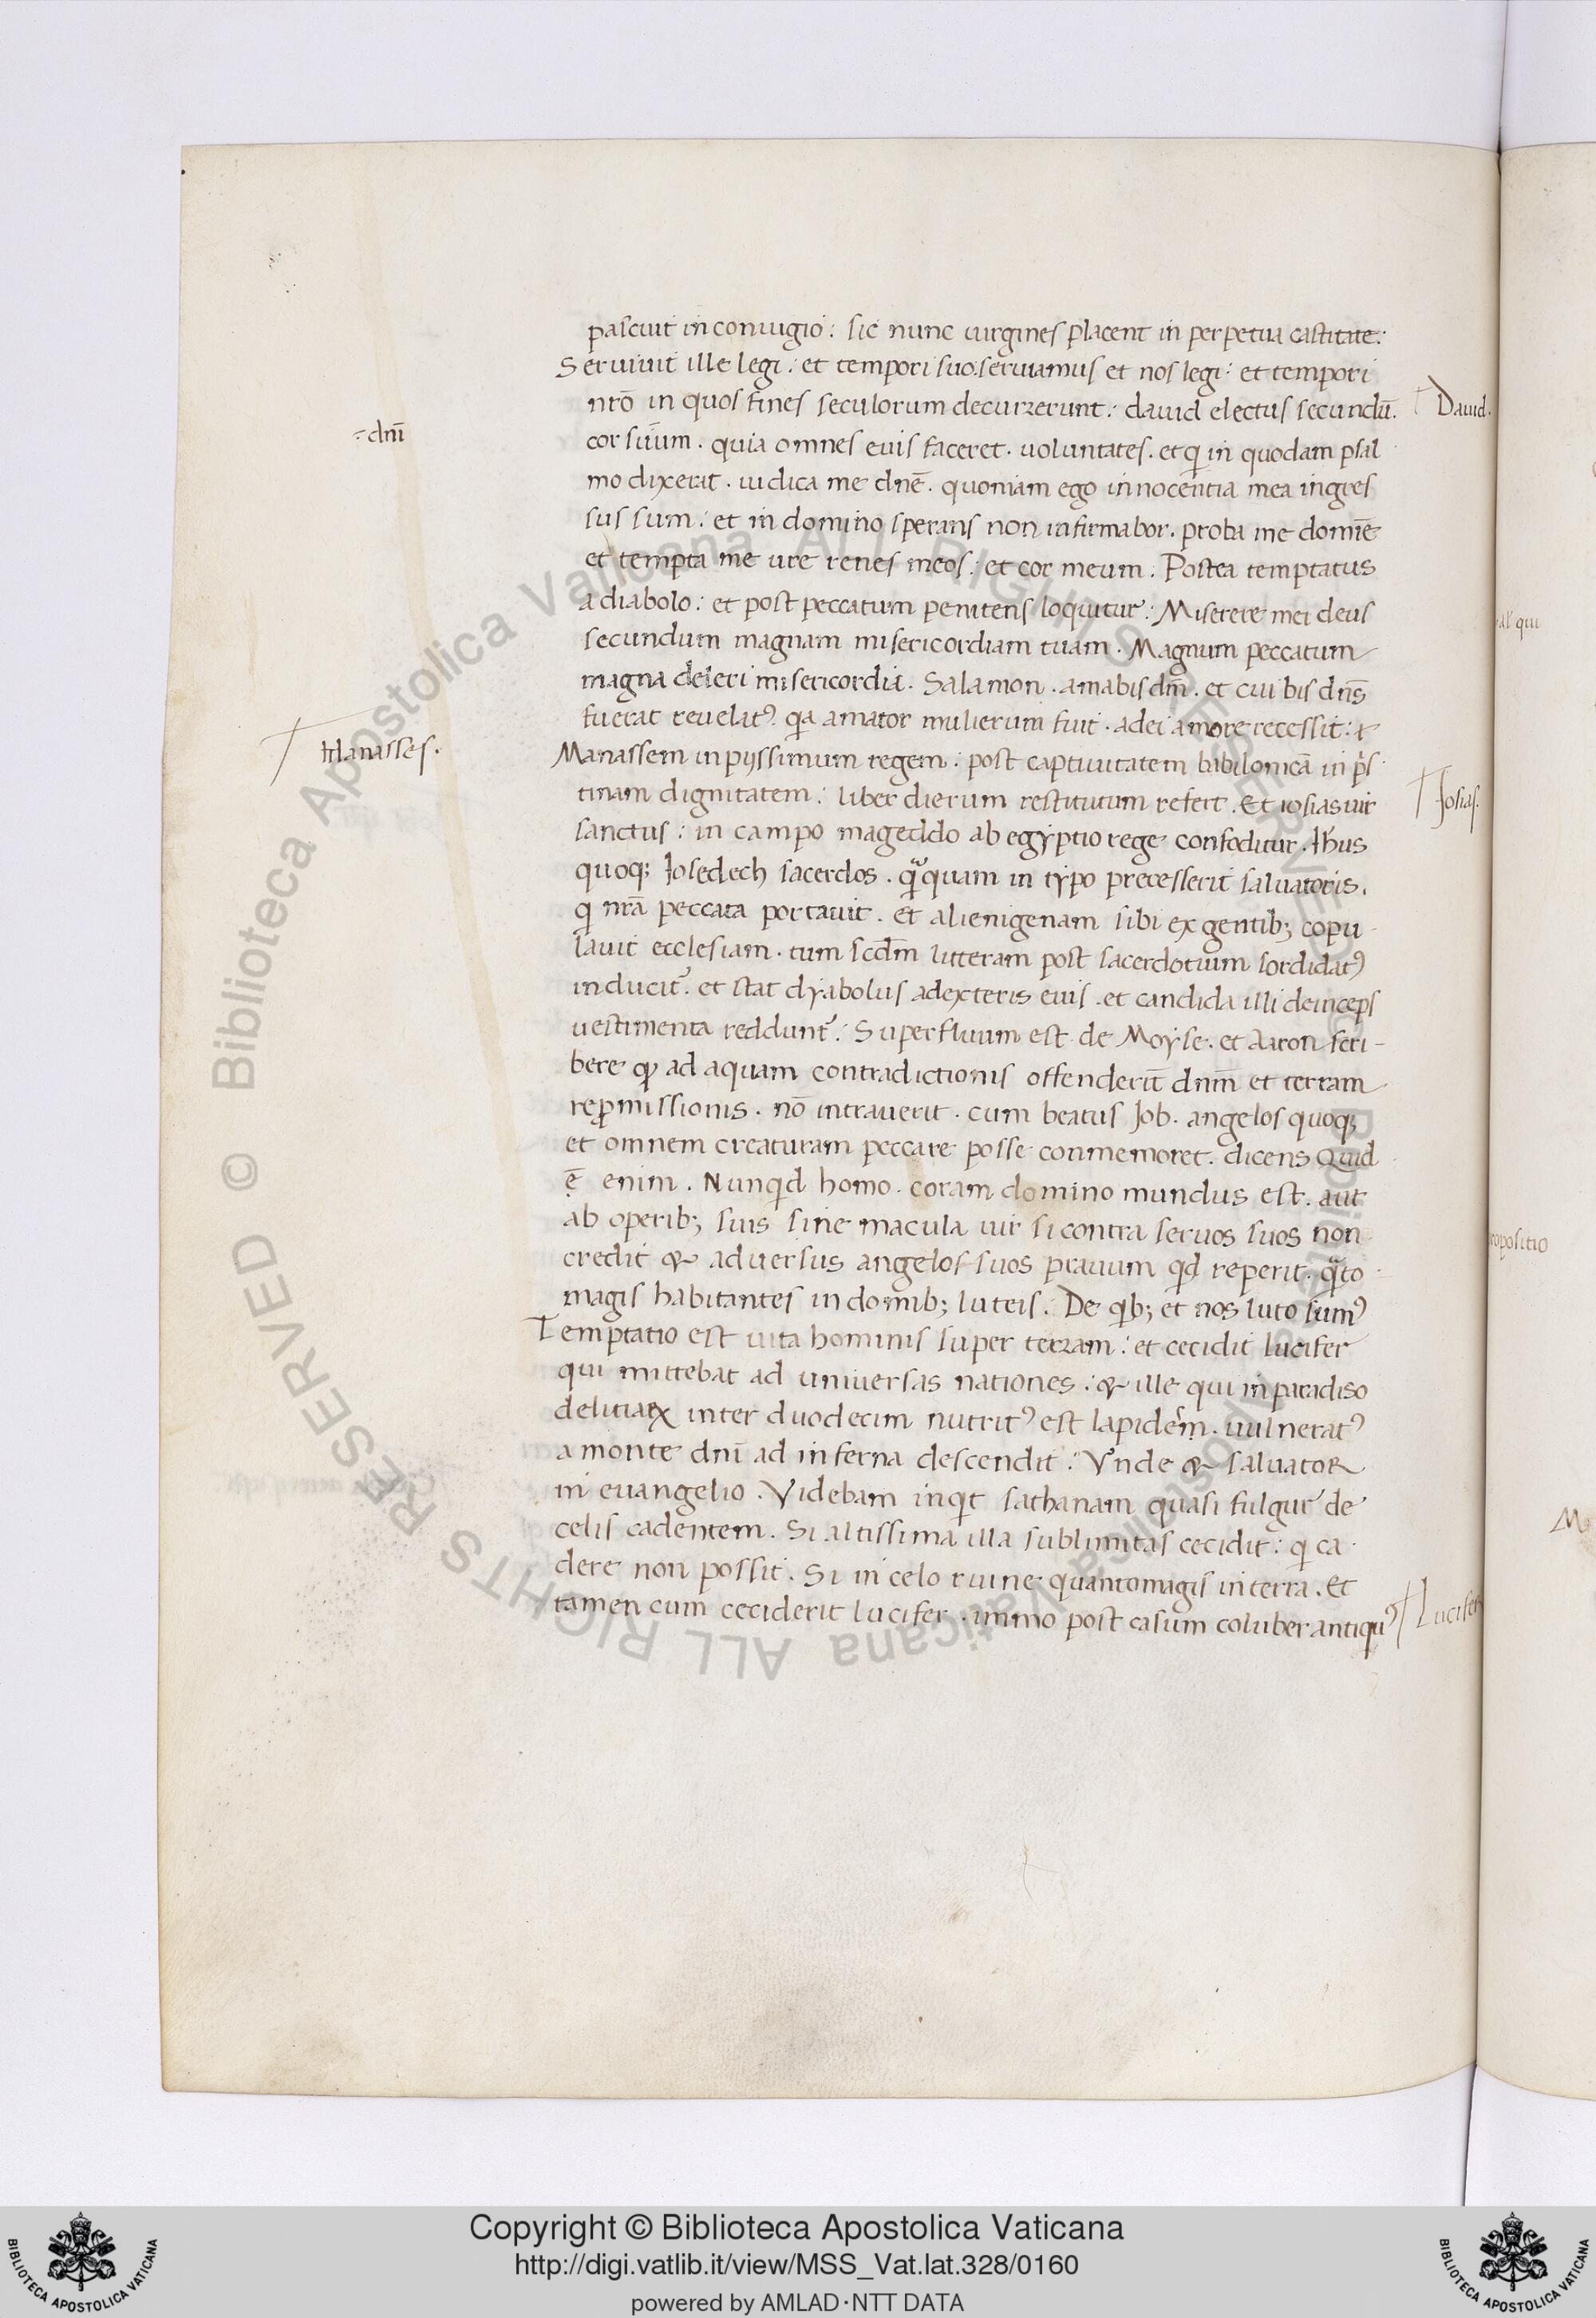 pasciuit in coniugio: sic nunc uirgines placent in perpetua castitate:
Seruiuit ille legi: et tempori suo: seruiamus et nos legi: et tempori
nrō in quos fines seculorum decurrerunt: dauid electus secundū.
Dauid.
÷ dnī
cor suum. quia omnes euis faceret. uoluntates. et q̄ in quodam psal
mo dixerat. iudica me dnē. quoniam ego innocentia mea ingres
sus sum: et in domino sperans non infirmabor. proba me domīe
et tempta me ure renes meos: et cor meum. Postea temptatus
a diabolo: et post peccatum penitens loquitur: Miserere mei deus
secundum magnam misericordiam tuam. Magnum peccatum
magna deleri misericordia. Salamon. amabis dm̄. et cui bis dn̄s
fuerat reuelat⁹. qa amator mulierum fuit. a dei amore recessit: &
Manasses.
Manassem inpijssimum regem: post captiuitatem babilonicā in prīs
tinam dignitatem: liber dierum restitutum refert. Et iosias uir
Josias.
sanctus: in campo mageddo ab egyptio rege confoditur. Ihus
quoq; Josedech sacerdos. qāquam in typo precesserit saluatoris.
q nrā peccata portauit. et alienigenam sibi ex gentib; copu
lauit ecclesiam. tum scdm̄ litteram post sacerdotium sordidat⁹
inducit᷑. et stat dyabolus adexteris euis. et candida illi deinceps
uestimenta reddunt᷑: Superfluum est de Moyse. et Aaron scri-
bere qđ ad aquam contradictionis offenderīt dnm̄ et terram
repmissionis. nō intrauerit. cum beatus Job. angelos quoq;
et omnem creaturam peccare posse conmemoret. dicens Quid
ē enim. Nunqd homo. coram domino mundus est. aut
ab operib; suis sine macula uir si contra seruos suos non
credit & aduersus angelos suos prauum qd reperit. qāto
magis habitantes in domib; luteis. De qib; et nos luto sum⁹
Temptatio est uita hominis super terram: et cecidit lucifer
qui mittebat ad uniuersas nationes: & ille qui in paradiso
delitiaꝝ inter duodecim nutrit⁹ est lapidem. uulnerat⁹
a monte dnī ad inferna descendit: Vnde & saluator
in euangelio. Videbam inqit sathanam quasi fulgur de
celis cadentem. Si altissima illa sublimitas cecidit: q ca
dere non possit. Si in celo ruine quantomagis in terra. Et
tamen cum ceciderit lucifer. immo post casum coluber antiqu⁹
Lucifer
al' qui
opositio
M
© Biblioteca Apostolica Vaticana ALL RIGHTS RESERVED
© Biblioteca Apostolica Vaticana ALL RIGHTS RESERVED
Copyright © Biblioteca Apostolica Vaticana
http://digi.vatlib.it/view/MSS_Vat.lat.328/0160
powered by AMLAD·NTT DATA
BIBLIOTECA APOSTOLICA VATICANA
BIBLIOTECA APOSTOLICA VATICANA